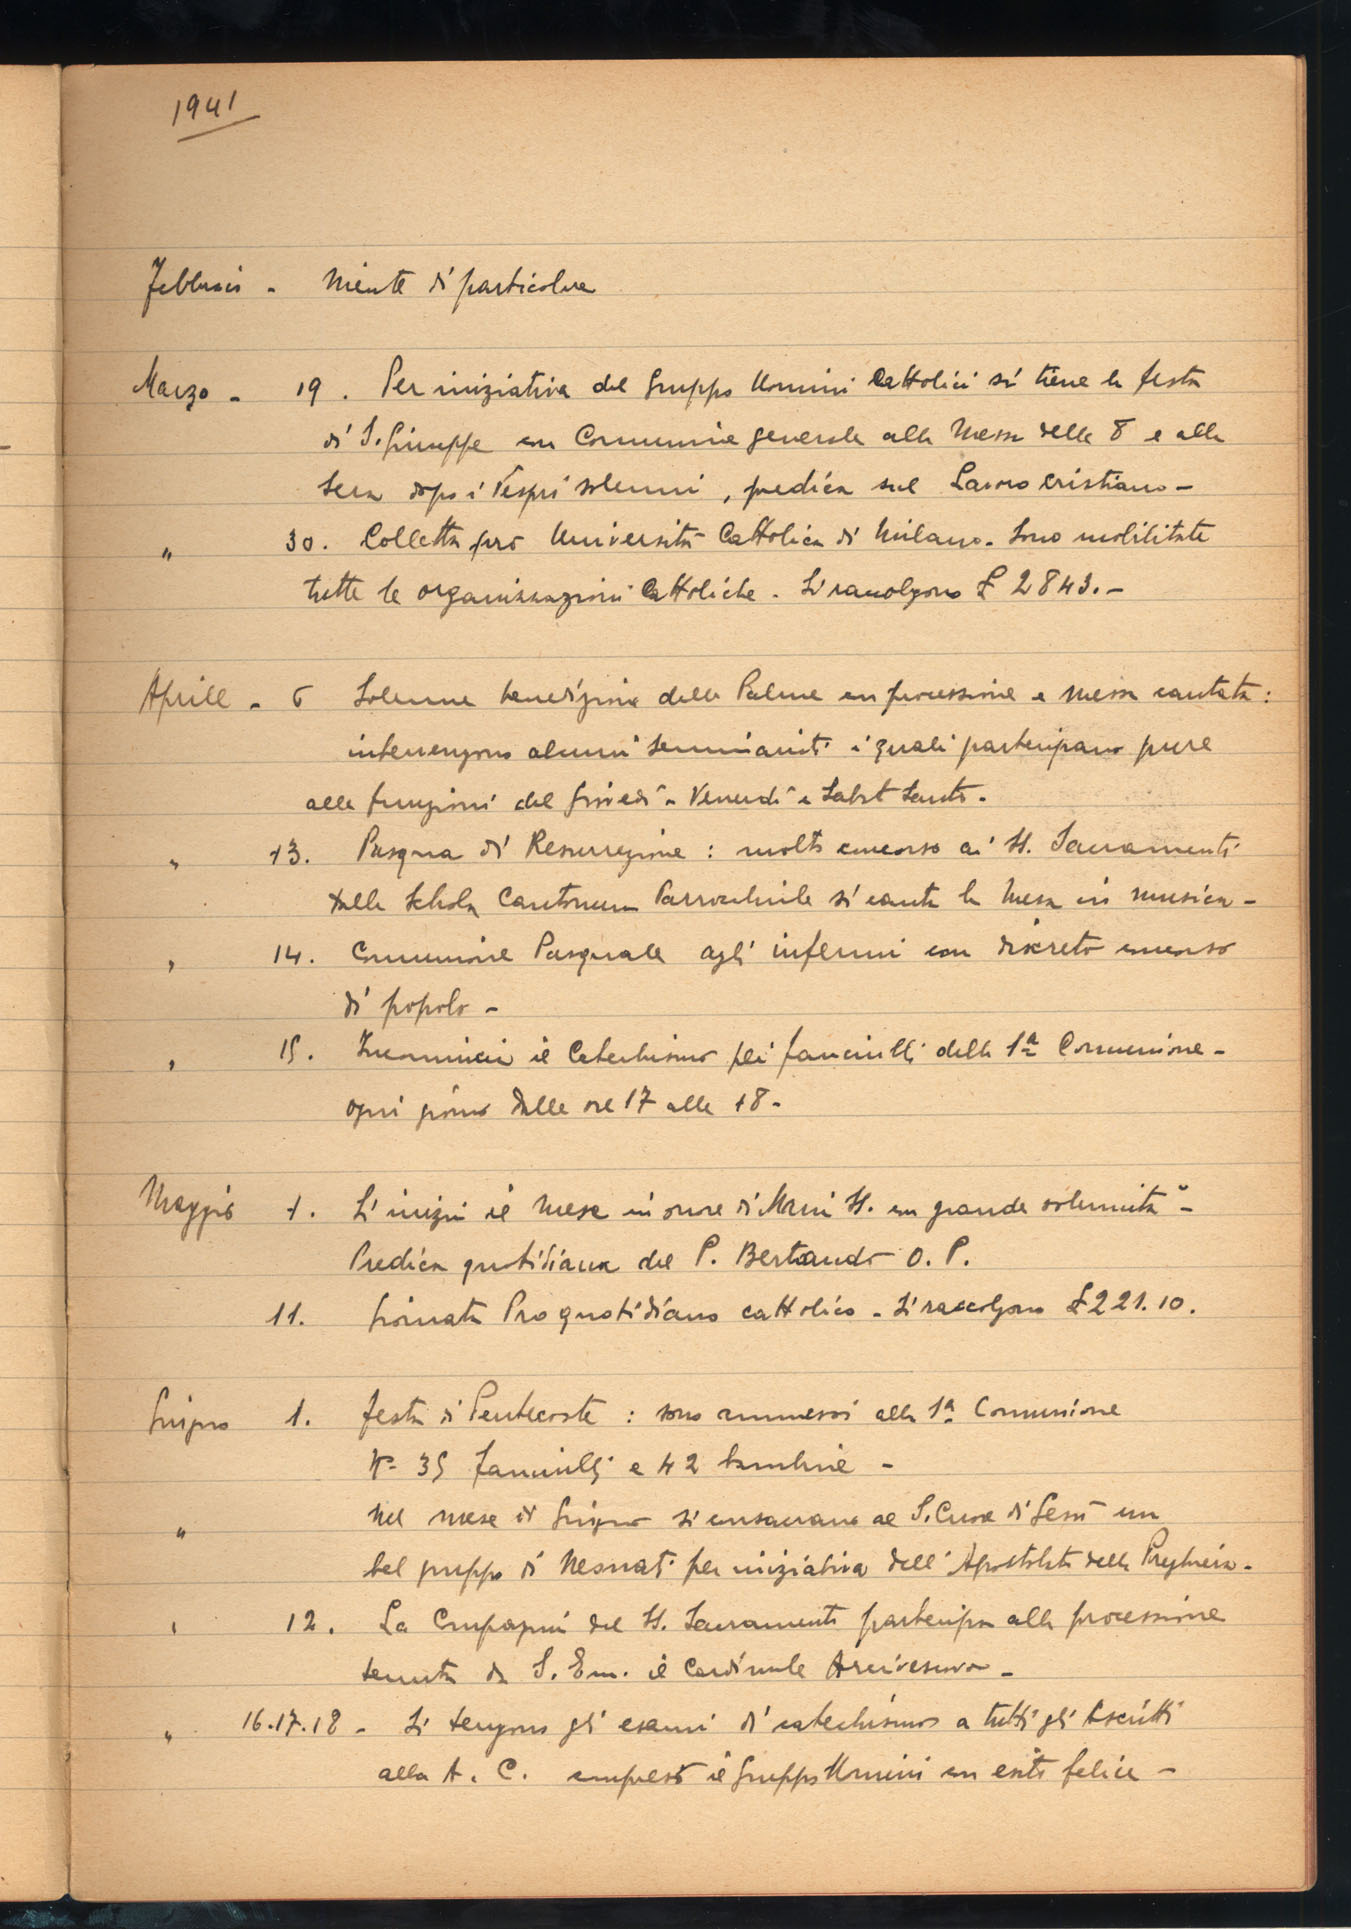 1941
Febbraio - Niente di particolare
Marzo - 19. Per iniziativa del Gruppo Uomini Cattolici si tiene la festa
di S. Giuseppe con Comunione generale alla Messa delle 8 e alla
sera dopo i Vespri solenni, predica sul Lavoro cristiano -
" 30. Colletta pro Università Cattolica di Milano. Sono mobilitate
tutte le organizzazioni Cattoliche. Si raccolgono £ 2843.-
Aprile - 6 Solenne benedizione delle Palme con processione e Messa cantata:
intervengono alcuni seminaristi i quali partecipano pure
alle funzioni del Giovedì - Venerdì e Sabato Santo.
" 13. Pasqua di Resurrezione: molto concorso ai SS. Sacramenti
dalla Schola Cantorum Parrocchiale si canta la Messa in musica -
" 14. Comunione Pasquale agli infermi con discreto concorso
di popolo -
" 15. Incomincia il Catechismo pei fanciulli della 1ª Comunione -
ogni giorno dalle ore 17 alle 18 -
Maggio 1. Si inizia il mese in onore di Maria SS. con grande solennità -
Predica quotidiana del P. Bertando O. P.
11. Giornata Pro quotidiano cattolico - Si raccolgono £ 221.10.
Giugno 1. Festa di Pentecoste: sono ammessi alla 1ª Comunione
Nº 35 fanciulli e 42 bambine -
" Nel mese di Giugno si consacrano al S. Cuore di Gesù un
bel gruppo di neonati per iniziativa dell'Apostolato della Preghiera -
" 12. La Compagnia del SS. Sacramento partecipa alla processione
tenuta da S. Em. il Cardinale Arcivescovo -
" 16.17.18 - Si tengono gli esami di catechismo a tutti gli Ascritti
alla A. C. compreso il Gruppo Uomini con esito felice -